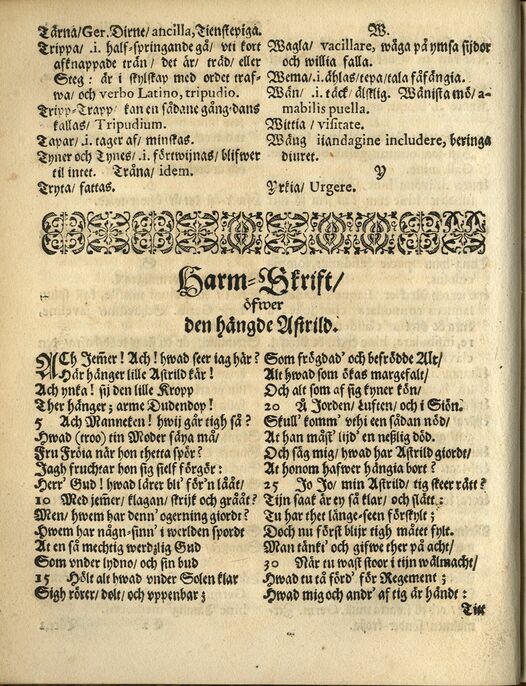 Tärna/ Ger. Dirne/ ancilla, Tienstepiga.
Trippa/ .i. half-springande gå/ vti kort
afknappade trän/ det är/ träd/ eller
Steg: är i skylskap med ordet traf-
wa/ och verbo Latino, tripudio.
Tripp-Trapp/ kan en sådane gång-dans
kallas/ Tripudium.
Tapar/ .i. tager af/ minskas.
Tyner och Tynes/ .i. förtwijnas/ blifwer
til intet. Tråna/ idem.
Tryta/ fattas.
W.
Wagla/ vacillare, wåga på ymsa sijdor
och willia falla.
Wema/ .i. åhlas/ tepa/ tala fåfängia.
Wän/ .i. täck/ älstlig. Wänista mö/ a-
mabilis puella.
Wittia/ visitate.
Wäng iiandagine includere, beringa
diuret.
Y
Yrkia/ Urgere.
Harm-Skrift/
öfwer
den hängde Astrild.
ACh Jemer! Ach! hwad seer iag här?
Här hänger lille Astrild kär!
Ach ynka! sij den lille Kropp
Ther hänger; arme Dudendop!
5 Ach Manneken! hwij går tigh så?
Hwad (troo) tin Moder säya må/
Fru Fröia när hon thetta spör?
Jagh fruchtar hon sig sielf förgör:
Herr' Gud! hwad lärer bli' för'n låät/
10 Med jemer/ klagan/ skrijk och gråät?
Men/ hwem har denn' ogerning giordt?
Hwem har någn-sinn' i werlden spordt
At en så mechtig werdzlig Gud
Som vnder lydno/ och sin bud
15 Hölt alt hwad vnder Solen klar
Sigh rörer/ dolt/ och vppenbar;
Som frögdad' och befrödde Alt/
Alt hwad som ökas margefalt/
Och alt som af sig kyner kön/
20 Å Jorden/ Luften/ och i Siön.
Skull' komm' vthi een sådan nöd/
At han måst' lijd' en neslig död.
Och säg mig/ hwad har Astrild giordt/
At honom hafwer hängia bort?
25 Jo Jo/ min Astrild/ tig skeer rätt?
Tijn saak är ey så klar/ och slätt:
Tu har thet länge-seen förskylt;
Doch nu först blijr tigh mätet fylt.
Man tänki' och gifwe ther på acht/
30 När tu wast stoor i tijn wälmacht/
Hwad tu tå förd' för Regement;
Hwad mig och andr' af tig är händt: